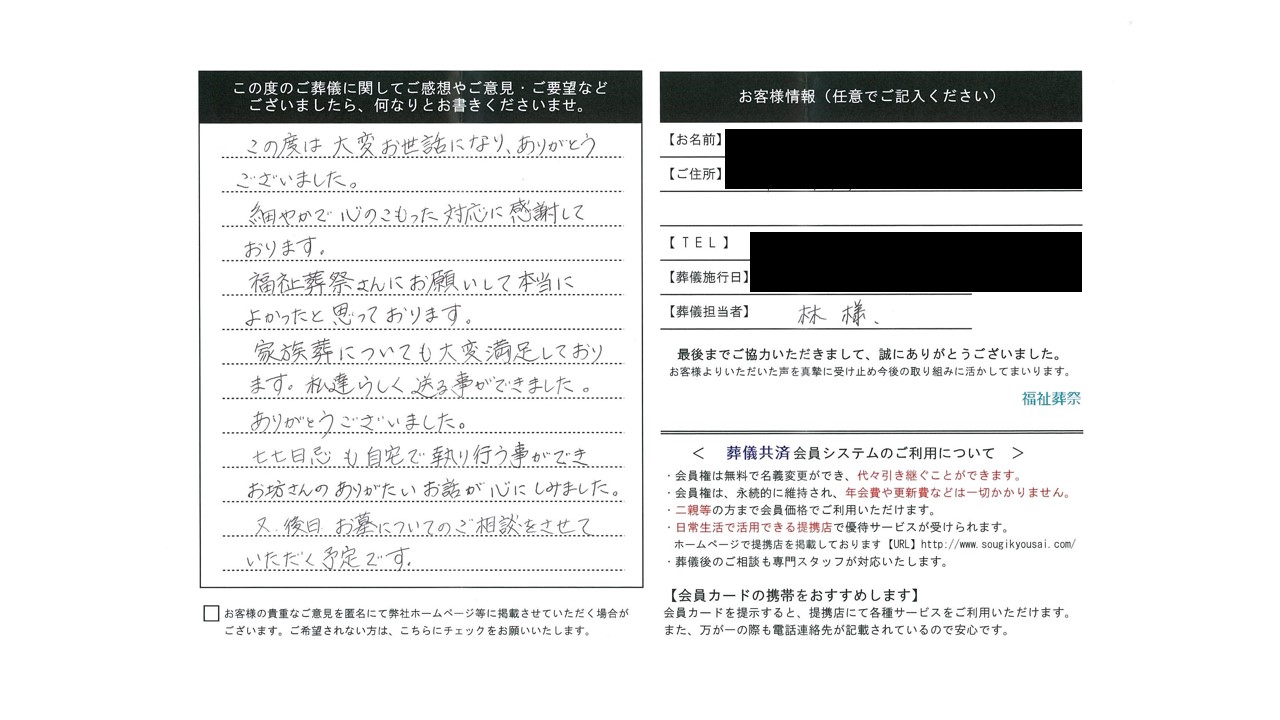 この度のご葬儀に関してご感想やご意見・ご要望など
ございましたら、何なりとお書きくださいませ。
この度は 大変お世話になり、ありがとう
ございました。
細やかで 心のこもった 対応に 感謝して
おります。
福祉葬祭さんにお願いして本当に
よかったと思っております。
家族葬についても大変満足しており
ます。私達らしく 送る事ができました。
ありがとうございました。
七七日忌 も 自宅で 執り行う事ができ
お坊さんの ありがたい お話が 心に しみました。
又、後日 お墓についてのご相談をさせて
いただく予定です。
お客様の貴重なご意見を匿名にて弊社ホームページ等に掲載させていただく場合が
ございます。ご希望されない方は、こちらにチェックをお願いいたします。
お客様情報（任意でご記入ください）
【お名前】
【ご住所】
【ＴＥＬ】
【葬儀施行日】
【葬儀担当者】 林 様、
最後までご協力いただきまして、誠にありがとうございました。
お客様よりいただいた声を真摯に受け止め今後の取り組みに活かしてまいります。
福祉葬祭
＜ 葬儀共済会員システムのご利用について ＞
・会員権は無料で名義変更ができ、代々引き継ぐことができます。
・会員権は、永続的に維持され、年会費や更新費などは一切かかりません。
・二親等の方まで会員価格でご利用いただけます。
・日常生活で活用できる提携店で優待サービスが受けられます。
ホームページで提携店を掲載しております【URL】http://www.sougikyousai.com/
・葬儀後のご相談も専門スタッフが対応いたします。
【会員カードの携帯をおすすめします】
会員カードを提示すると、提携店にて各種サービスをご利用いただけます。
また、万が一の際も電話連絡先が記載されているので安心です。